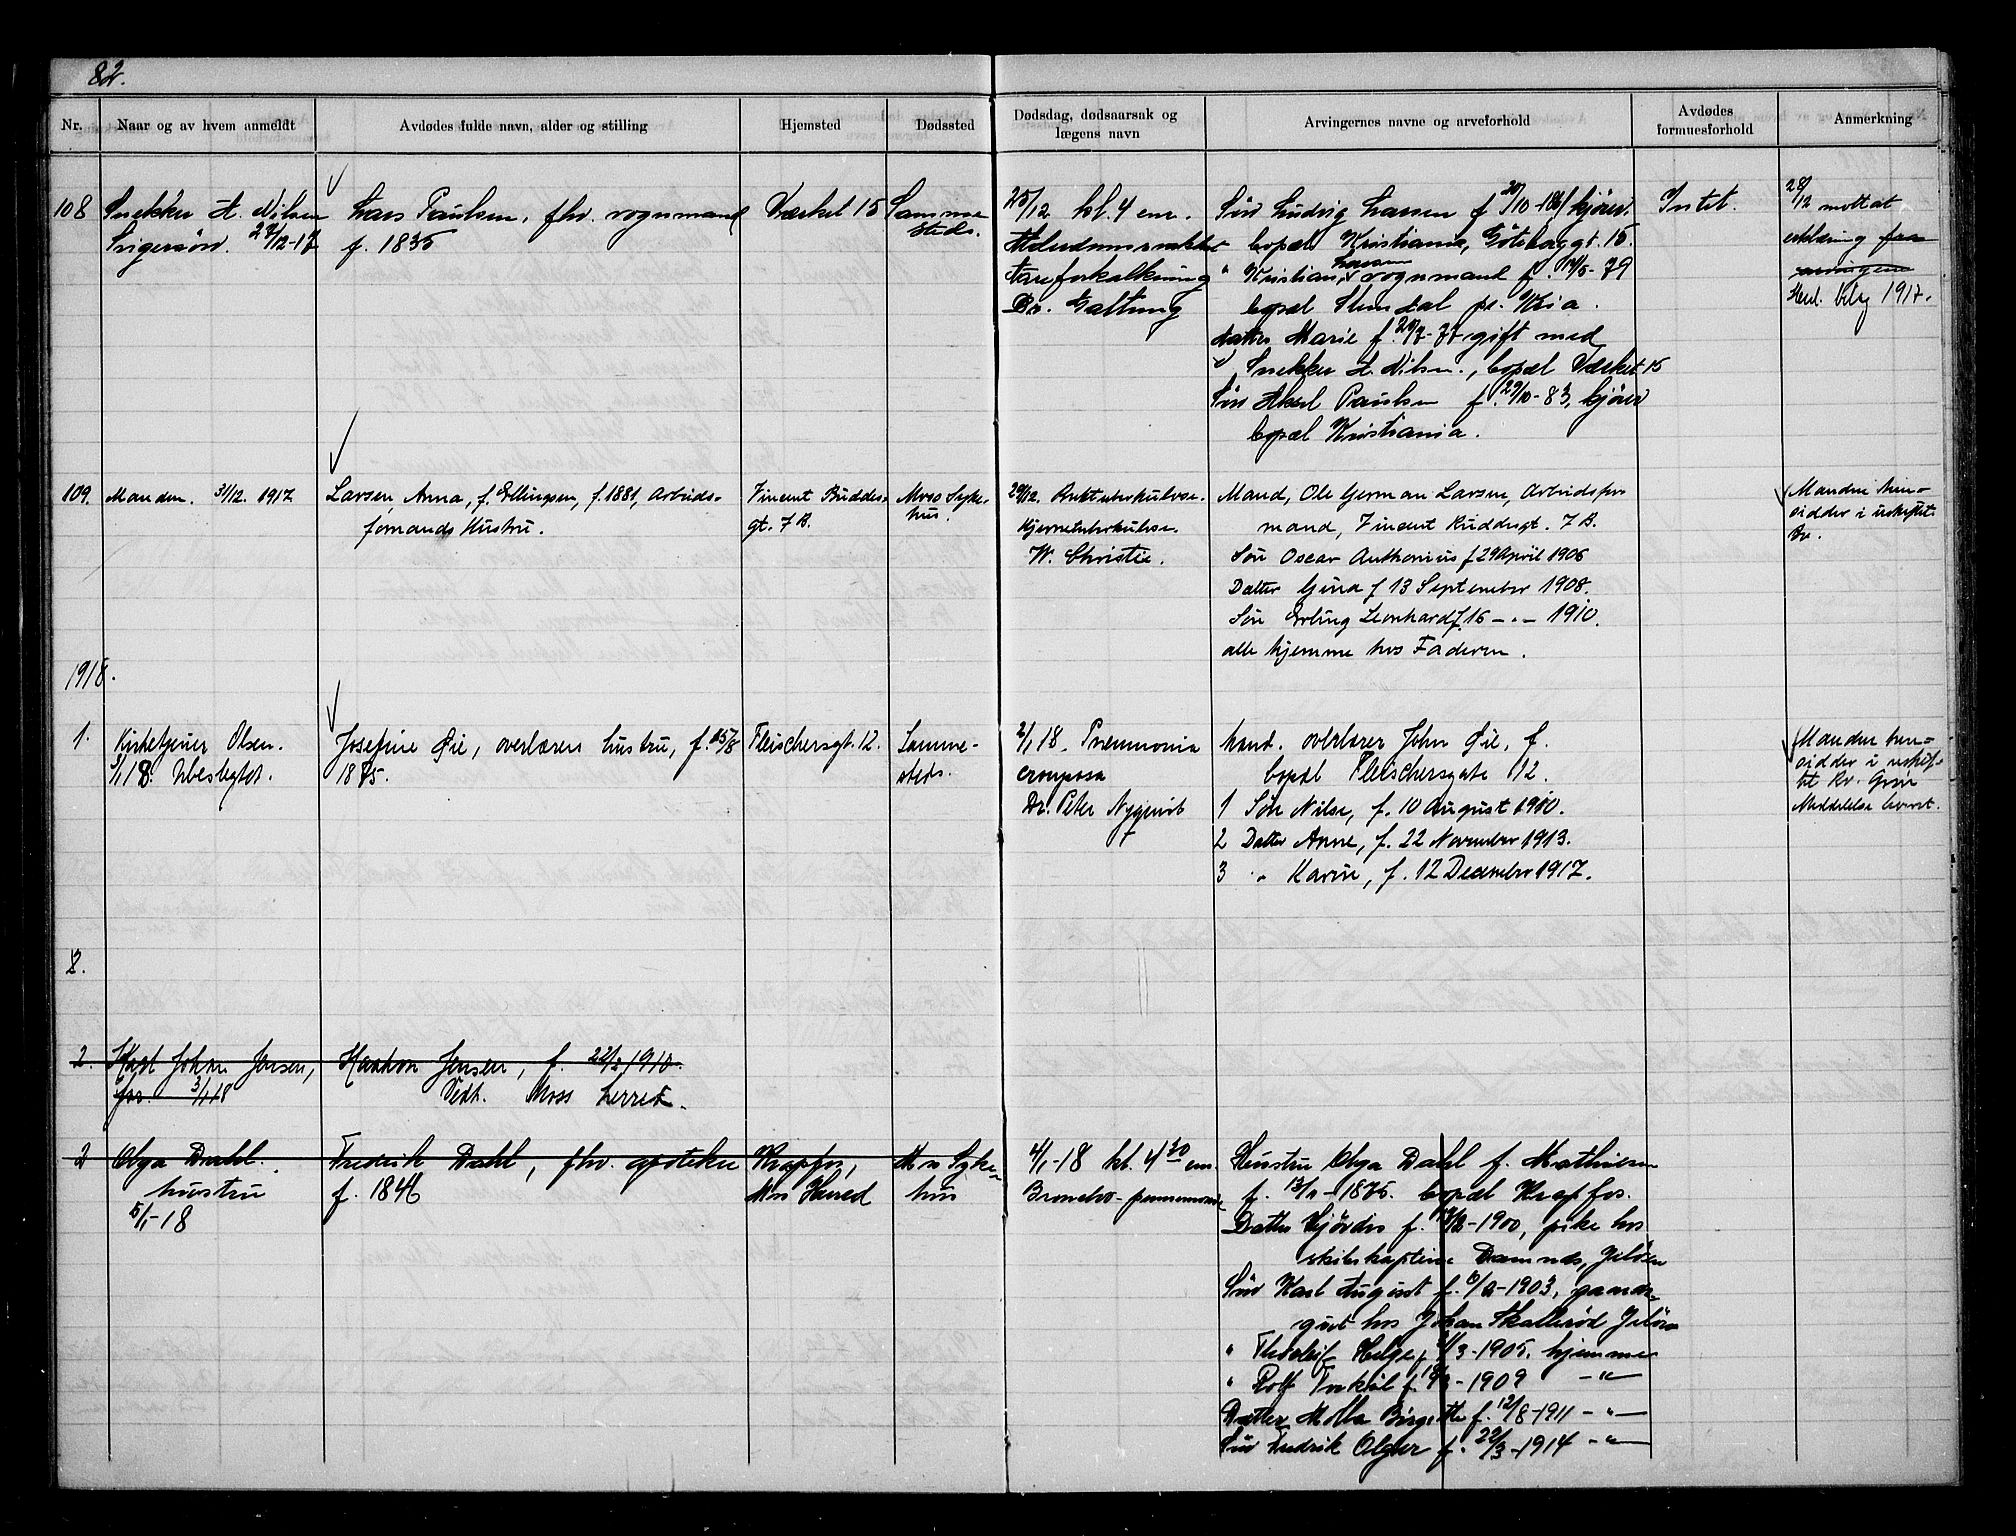 82.
Nr.
Naar og av hvem anmeldt
Avdødes fulde navn, alder og stilling
Hjemsted
Dødssted
Dødsdag, dødsaarsak og
lægens navn
Arvingernes navne og arveforhold
Avdødes
formuesforhold
Anmerkning
108
Snekker H. Nilsen
Svigersøn. 27/12-17
Lars Paulsen, fhv. vognmand
f. 1835
Værket 15
Samme
steds.
25/12 kl. 4 em.
Alderdomssvakhet
Aareforkalkning
Dr. Galtung
Søn Ludvig Larsen f kjører.
bopæl Kristiania, Göteborggt. 15.
" Kristian Larsen vognmand f. 14/5-79
bopæl Stendal pr. Kria.
datter Marie f. gift med
Snekker H. Nilsen., bopæl Værket 15
Søn Aksel Paulsen f. 29/10-83, kjører
bopæl Kristiania.
Intet.
28/12 mottat
erklæring fra
arvingene
Skul. bilag 1917.
109.
Manden. 31/12. 1917
Larsen, Anna, f. Ellingsen, f. 1881, Arbeids-
formands Hustru.
Vincent Buddes-
gt. 7 B.
Moss Syke-
hus.
29/12. Bukttuberkulose.
Hjernetuberkulose.
W. Christie.
Mand, Ole German Larsen, Arbeidsfor
mand, Vincent Buddesgt. 7 B.
Søn Oscar Anthonius f 29 April 1906
Datter Gina f 13 September 1908.
Søn Erling Leonhard f. 16 - " - 1910.
alle hjemme hos Faderen.
Manden hen-
sidder i uskiftet
Bo.
1918.
1.
Kirketjener Olsen.
3/1 18. Ubeslegtet.
Josefine Øie, overlærers hustru, f. 15/8
1885.
Fleischersgt. 12.
Samme-
steds.
2/1 18. Pneumonia
crouposa
Dr. Peter Nyquist
Mand. overlærer John Øie, f.
bopæl Fleischersgate 12.
1 Søn Nilse, f. 10 August 1910.
2 Datter Anne, f. 22 November 1913.
3 " Karin, f. 12 December 1917.
Manden hen-
sidder i uskif-
tet Bo.
Meddelelse
2.
2. Johan Jensen,
3/1 18
Haakon Jensen, f. 1910.
Vedk. Moss Herred.
2
Olga Dahl.
hustru
5/1-18
Fredrik Dahl, fhv. apoteker
f. 1846
Krapfos,
Moss Herred
Moss Syke-
hus
4/1-18 kl. 4 30 em.
Broncho-pneumonie
Hustru Olga Dahl f. Mathisen
f. 1875. bopæl Krapfos.
Datter Hjørdis f. 1900, pike hos
skibskaptein Damnæs, Jeløen
Søn Karl August f. 1903, gaards-
gut hos Johan Skallerød Jeløen
" Thorleif Helge, 1905. hjemme
" Rolf Torkil f. 1909 - " -
Datter Molla Birgitte f. 12/8-1911 - " -
Søn Fredrik Olger f. 22/3-1914 - " -